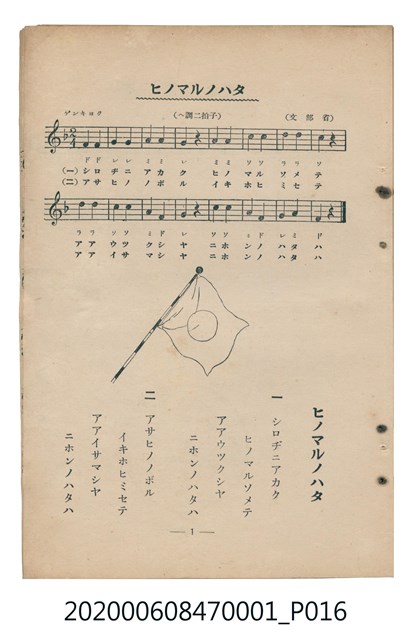 ヒノマルノハタ
ゲンキヨク
(ヘ調二拍子)
(文部省)
ドドレレミミレ ミミソソララソ
(一)シロヂニアカク ヒノマルソメテ
(二)アサヒノノボル イキホヒミセテ
ララソソミドレ ソソミドレミド
アアウツクシヤ ニホンノハタハ
アアイサマシヤ ニホンノハタハ
ヒノマルノハタ
一
シロヂニアカク
ヒノマルソメテ
アアウツクシヤ
ニホンノハタハ
二
アサヒノノボル
イキホヒミセテ
アアイサマシヤ
ニホンノハタハ
— 1 —
202000608470001_P016